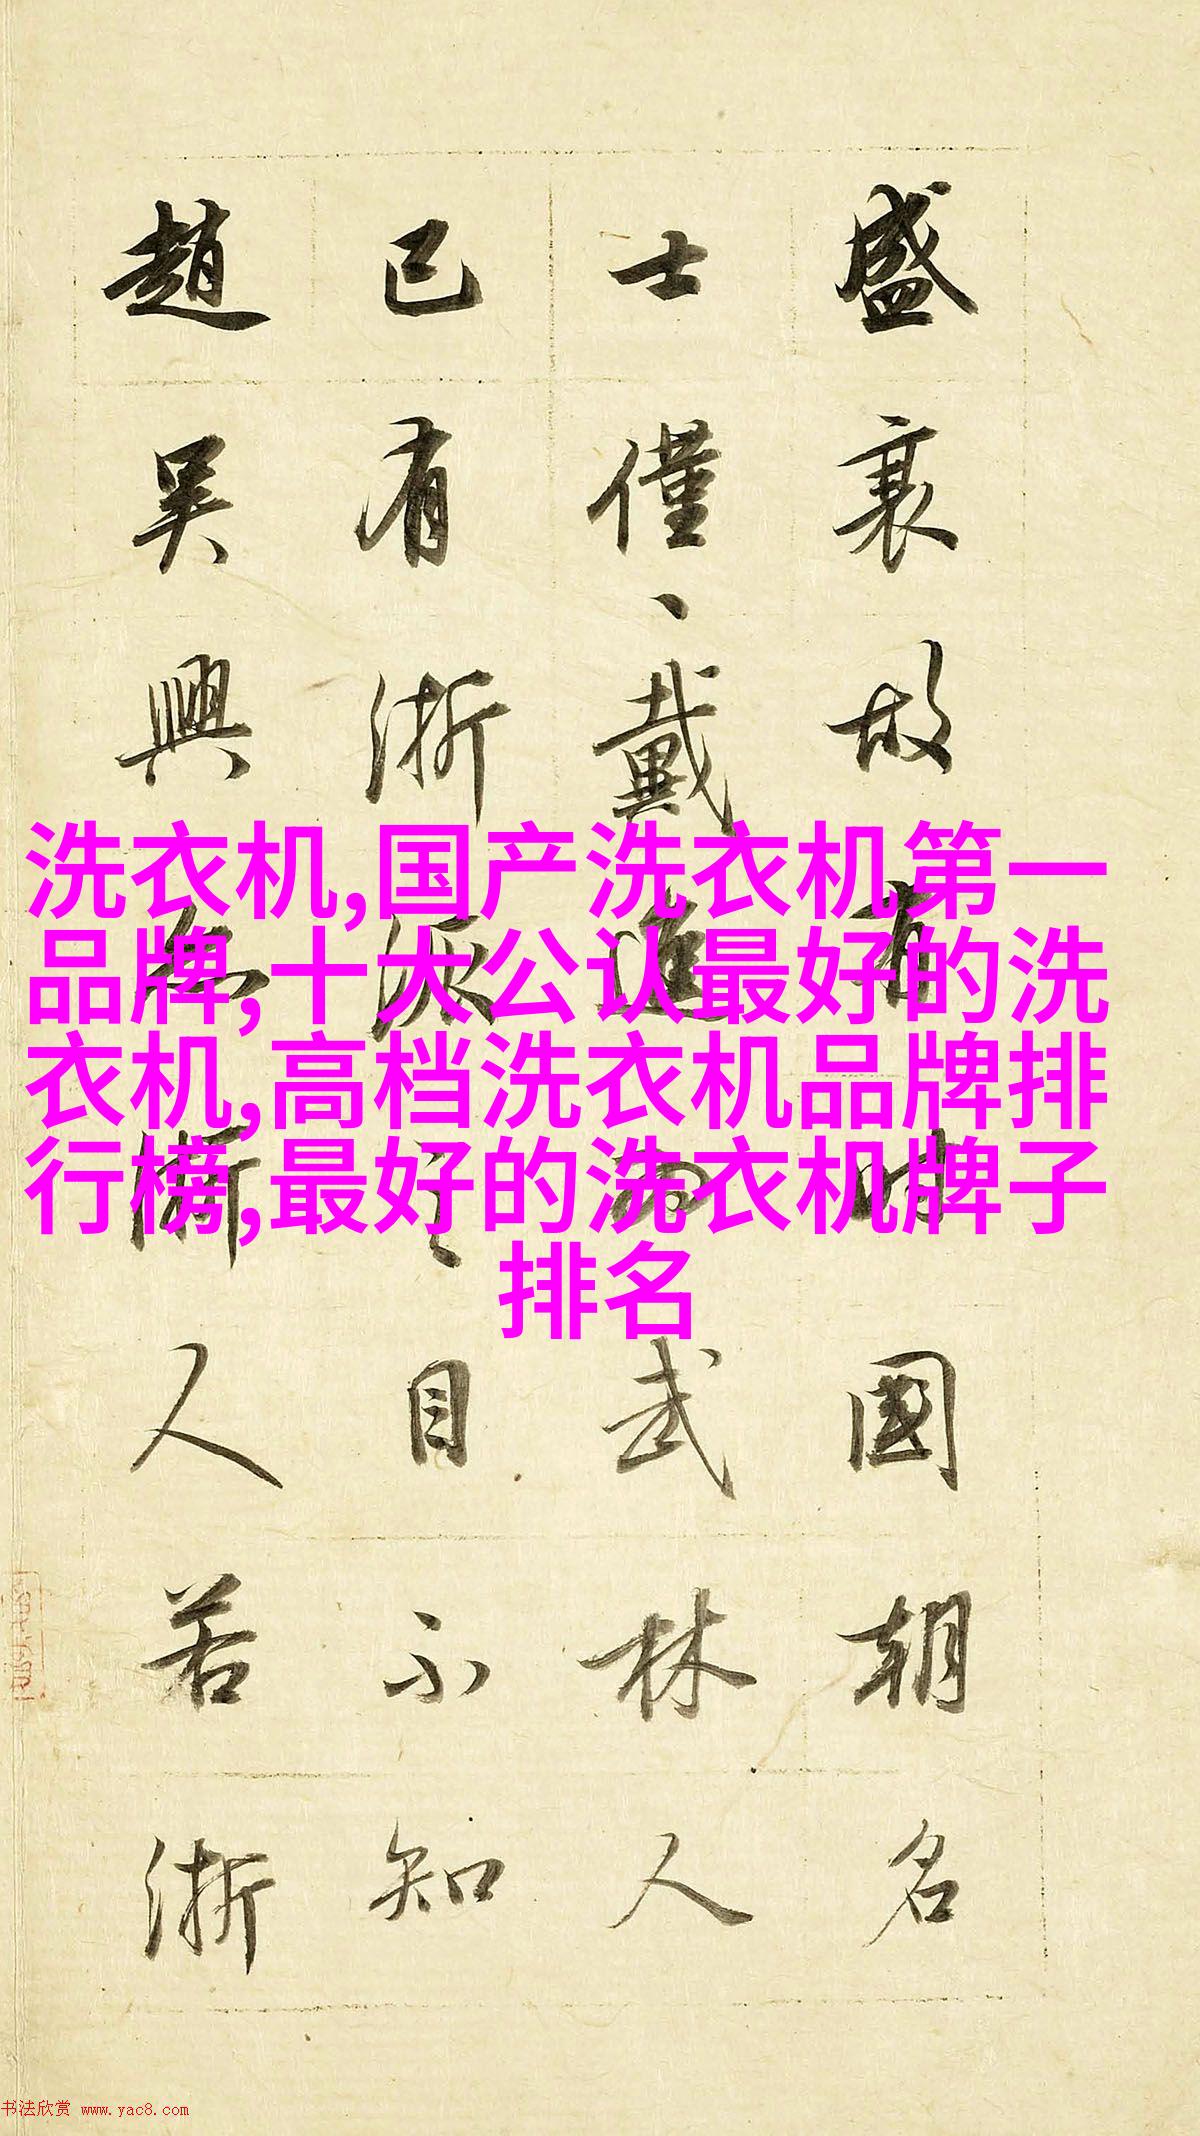 盛衰故有時國朝名
士僅、戴進為武林人
已有浙派之目不知
趙吳興亦浙人若浙
洗衣机,国产洗衣机第一
品牌,十大公认最好的洗
衣机,高档洗衣机品牌排
行榜,最好的洗衣机牌子
排名
书法欣赏 www.yac8.com